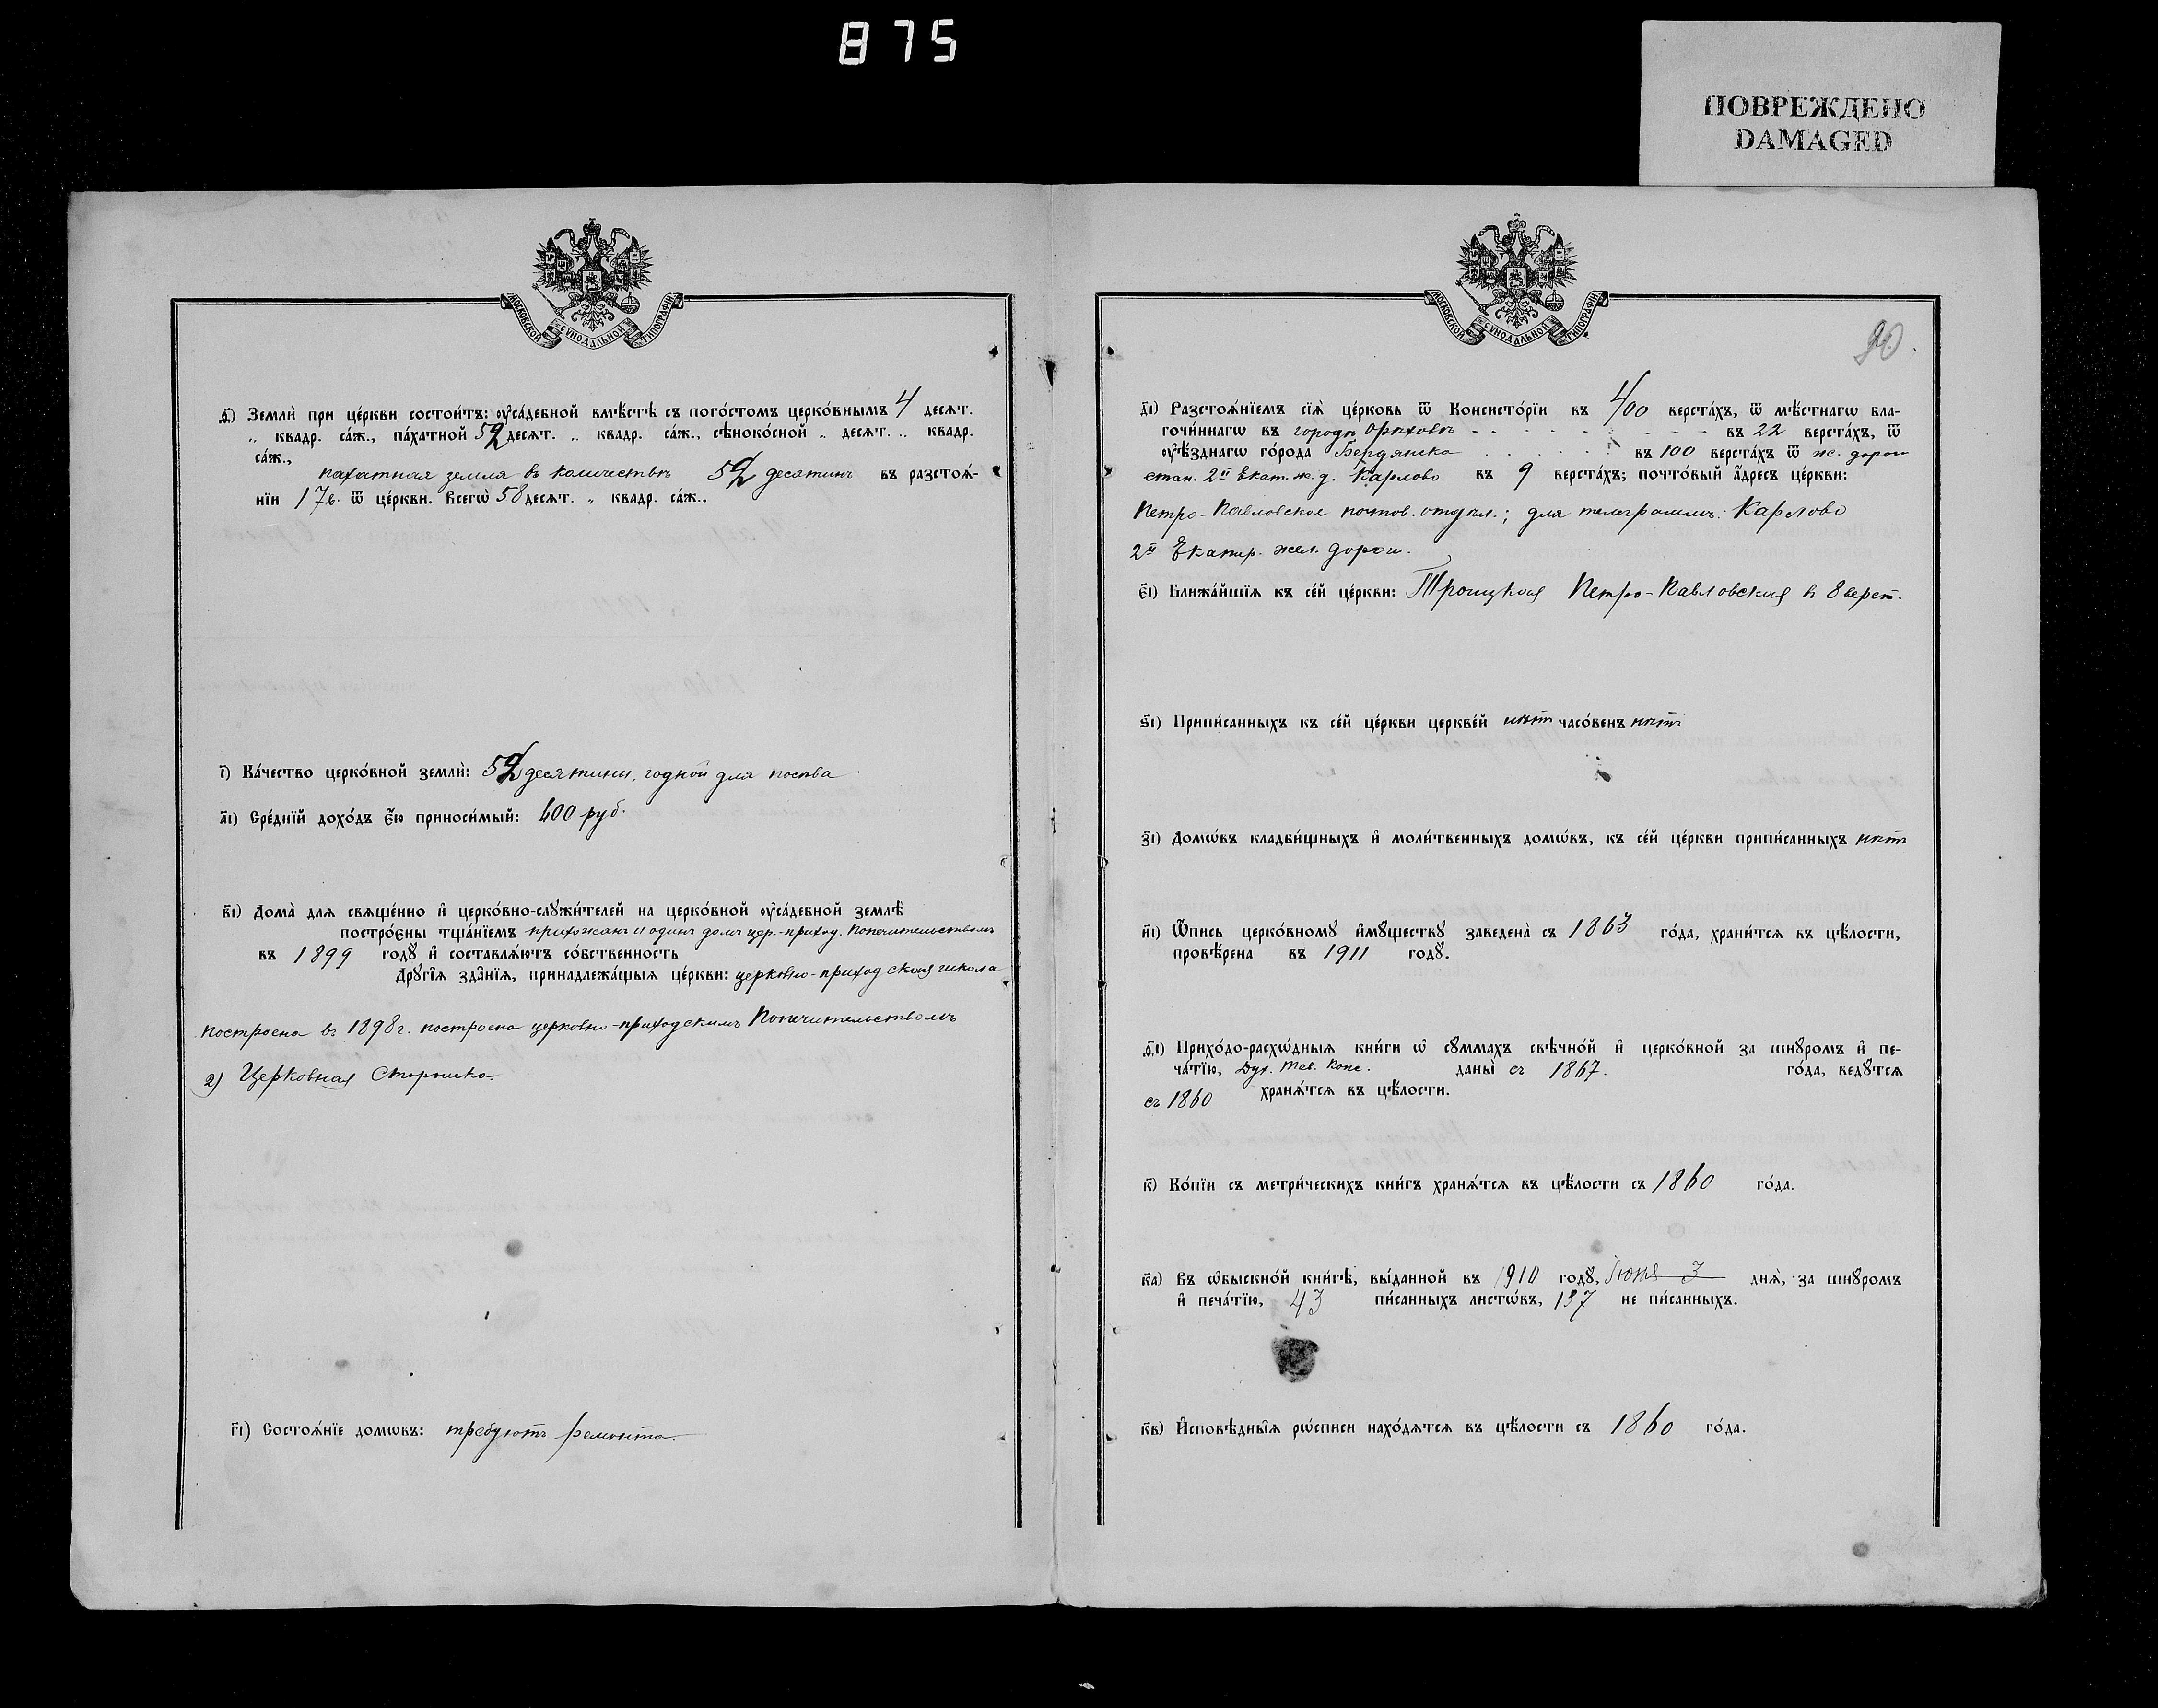 875
ПОВРЕЖДЕНО
DAMAGED
МОСКОВСКОЙ СѴНОДАЛЬНОЙ ТИПОГРАФІИ
ѳ҃) Землѝ при це́ркви состои́тъ: ᲂу҆са́дебной вмѣ́стѣ съ пого́стомъ церко́внымъ 4 десѧт.
„ квадр. са́ж., па́хатной 52 десѧт. „ квадр. са́ж., сѣноко́сной „ десѧт. „ квадр.
са́ж.,
пахатная земля въ количествѣ 52 десятинъ въ разстоѧ́-
нїи 17 в. ѿ це́ркви. Всегѡ̀ 58 десѧт. „ квадр. са́ж..
і҃) Ка́чество церко́вной землѝ: 52 десятины, годной для посѣва
а҃і) Сре́днїй дохо́дъ є҆́ю приноси́мый: 400 руб.
в҃і) Дома̀ для свѧще́нно и҆ церко́вно-слꙋжи́телей на церко́вной ᲂу҆са́дебной землѣ̀
постро́єны тща́нїемъ прихожанъ и одинъ домъ цер.-приход. Попечительствомъ
въ 1899 годꙋ̀ и҆ составлѧ́ютъ со́бственность
Дрꙋгі̑ѧ зда̑нїѧ, принадлежа́щыѧ це́ркви: церковно-приходская школа
построена въ 1898 г. построена церковно-приходскимъ Попечительствомъ
2) Церковная Сторожка.
г҃і) Состоѧ́нїе домѡвъ: требуютъ ремонта.
МОСКОВСКОЙ СѴНОДАЛЬНОЙ ТИПОГРАФІИ
д҃і) Разстоѧ́нїемъ сїѧ̀ це́рковь ѿ Консисто́рїи въ 400 верста́хъ, ѿ мѣ́стнагѡ бла-
гочи́ннагѡ въ городѣ Орѣховѣ въ 22 верста́хъ, ѿ
ᲂу҆ѣ́зднагѡ го́рода Бердянска въ 100 верста́хъ ѿ ж. дорож
стан. 2й Екат. ж. д. Карлово въ 9 верста́хъ; почто́вый а҆́дресъ це́ркви:
Петро-Павловское почтов. отдѣл.; для телеграммъ: Карлово
2й Екатер. жел. дороги.
є҃і) Ближа́йшїѧ къ се́й це́ркви: Троицкая Петро-Павловская въ 8 верст.
ѕ҃і) Припи́санныхъ къ се́й це́ркви церкве́й нѣтъ часо́венъ нѣтъ
з҃і) Домѡ́въ кладби́щныхъ и҆ моли́твенныхъ домѡ́въ, къ се́й це́ркви припи́санныхъ нѣтъ
и҃і) Ѻ҆́пись церко́вномꙋ и҆мꙋ́ществꙋ заведена̀ съ 1863 го́да, храни́тсѧ въ цѣ́лости,
провѣ́рена въ 1911 годꙋ̀.
ѳ҃і) Прихо́до-расхѡ́дныѧ кни́ги ѡ҆ сꙋ́ммахъ свѣчно́й и҆ церко́вной за шнꙋро́мъ и҆ пе-
ча́тїю, Дух. Тав. Конс. даны̀ съ 1867. го́да, ведꙋ́тсѧ
съ 1860 хранѧ́тсѧ въ цѣ́лости.
к҃) Ко́пїи съ метри́ческихъ кни́гъ хранѧ́тсѧ въ цѣ́лости съ 1860 го́да.
к҃а) Въ ѡ҆́быскной кни́гѣ, вы́данной въ 1910 годꙋ̀, Iюня 3 днѧ̀, за шнꙋро́мъ
и҆ печа́тїю, 43 пи́санныхъ листѡ́въ, 137 не пи́санныхъ.
к҃в) И҆сповѣ̑дныѧ рѡ́списи нахо́дѧтсѧ въ цѣ́лости съ 1860 го́да.